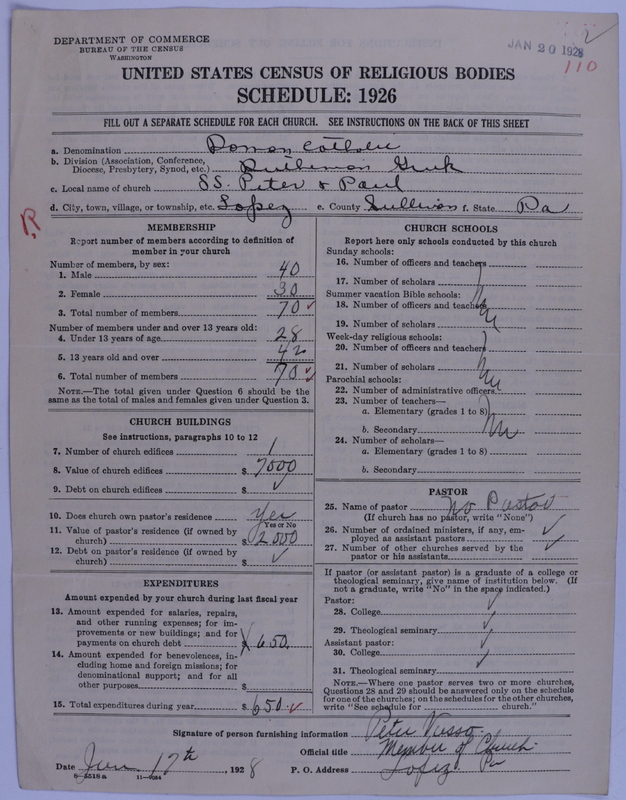 DEPARTMENT OF COMMERCE
BUREAU OF THE CENSUS
WASHINGTON
JAN 20 1928
2
110
UNITED STATES CENSUS OF RELIGIOUS BODIES
SCHEDULE: 1926
FILL OUT A SEPARATE SCHEDULE FOR EACH CHURCH. SEE INSTRUCTIONS ON THE BACK OF THIS SHEET
a. Denomination Roman Catholic
b. Division (Association, Conference, Diocese, Presbytery, Synod, etc.) Greek
c. Local name of church SS. Peter & Paul
d. City, town, village, or township, etc. Lopez e. County Sullivan f. State Pa
R
MEMBERSHIP
Report number of members according to definition of
member in your church
Number of members, by sex:
1. Male 40
2. Female 30
3. Total number of members 70 ✓
Number of members under and over 13 years old:
4. Under 13 years of age 28
5. 13 years old and over 42
6. Total number of members 70 ✓
NOTE.—The total given under Question 6 should be
same as the total of males and females given under Question 3.
CHURCH BUILDINGS
See instructions, paragraphs 10 to 12
7. Number of church edifices 1
8. Value of church edifices $ 7000
9. Debt on church edifices $ ✓
10. Does church own pastor's residence Yes
Yes or No
11. Value of pastor's residence (if owned by
church) $ 2000
12. Debt on pastor's residence (if owned by
church) $ ✓
EXPENDITURES
Amount expended by your church during last fiscal year
13. Amount expended for salaries, repairs,
and other running expenses; for im-
provements or new buildings; and for
payments on church debt $ 650.
14. Amount expended for benevolences, in-
cluding home and foreign missions; for
denominational support; and for all
other purposes $
15. Total expenditures during year $ 650. ✓
CHURCH SCHOOLS
Report here only schools conducted by this church
Sunday schools:
16. Number of officers and teachers
17. Number of scholars
Summer vacation Bible schools:
18. Number of officers and teachers
19. Number of scholars
Week-day religious schools:
20. Number of officers and teachers
21. Number of scholars
Parochial schools:
22. Number of administrative officers
23. Number of teachers—
a. Elementary (grades 1 to 8)
b. Secondary
24. Number of scholars—
a. Elementary (grades 1 to 8)
b. Secondary
PASTOR
25. Name of pastor No Pastor
(If church has no pastor, write "None")
26. Number of ordained ministers, if any, em-
ployed as assistant pastors ✓
27. Number of other churches served by the
pastor or his assistants ✓
If pastor (or assistant pastor) is a graduate of a college or
theological seminary, give name of institution below. (If
not a graduate, write "No" in the space indicated.)
Pastor:
28. College ✓
29. Theological seminary ✓
Assistant pastor:
30. College ✓
31. Theological seminary
NOTE.—Where one pastor serves two or more churches,
Questions 28 and 29 should be answered only on the schedule
for one of the churches; on the schedules for the other churches,
write "See schedule for church."
Signature of person furnishing information Peter
Official title Member of Church
Date Jan 17th, 1928 P. O. Address Lopez Pa
8-5518a 11-9064